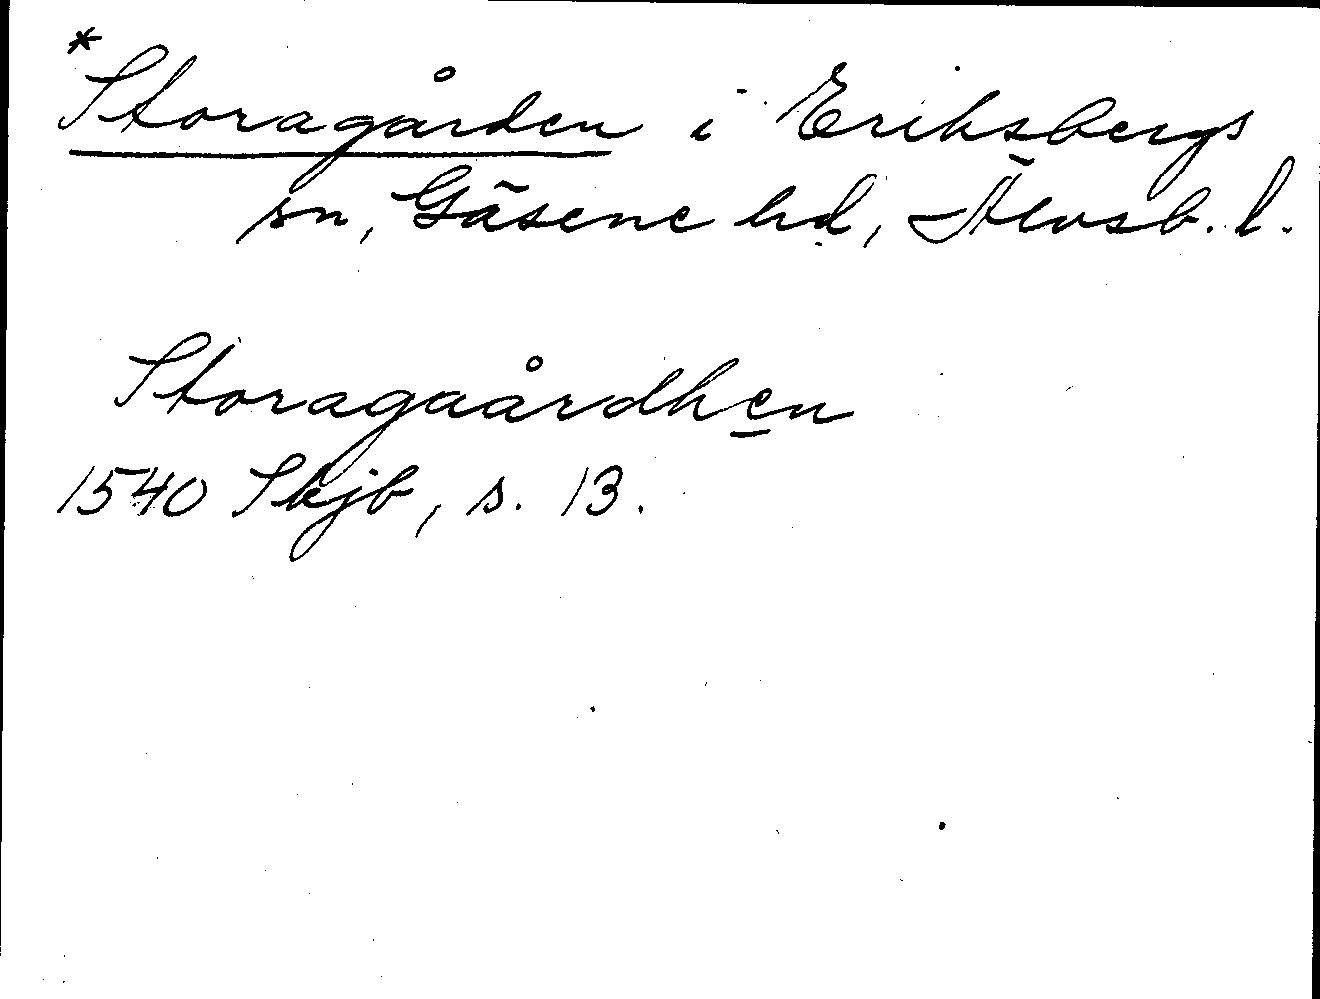 *Storagården i Eriksbergs
sn, Gäsene hd, Älvsb. l.
Storagaårdhen
1540 Skjb, s. 13.